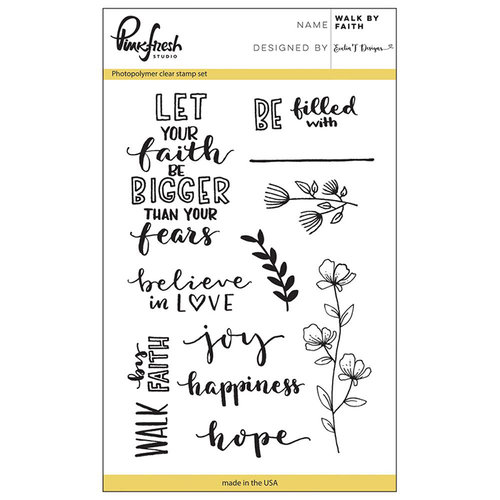 Pinkfresh
STUDIO
NAME
WALK BY
FAITH
DESIGNED BY
Evelin T Designs
Photopolymer clear stamp set
LET
YOUR
faith
BE
BIGGER
THAN YOUR
fears
BE filled
with
believe
in LOVE
WALK by FAITH
joy
happiness
hope
made in the USA